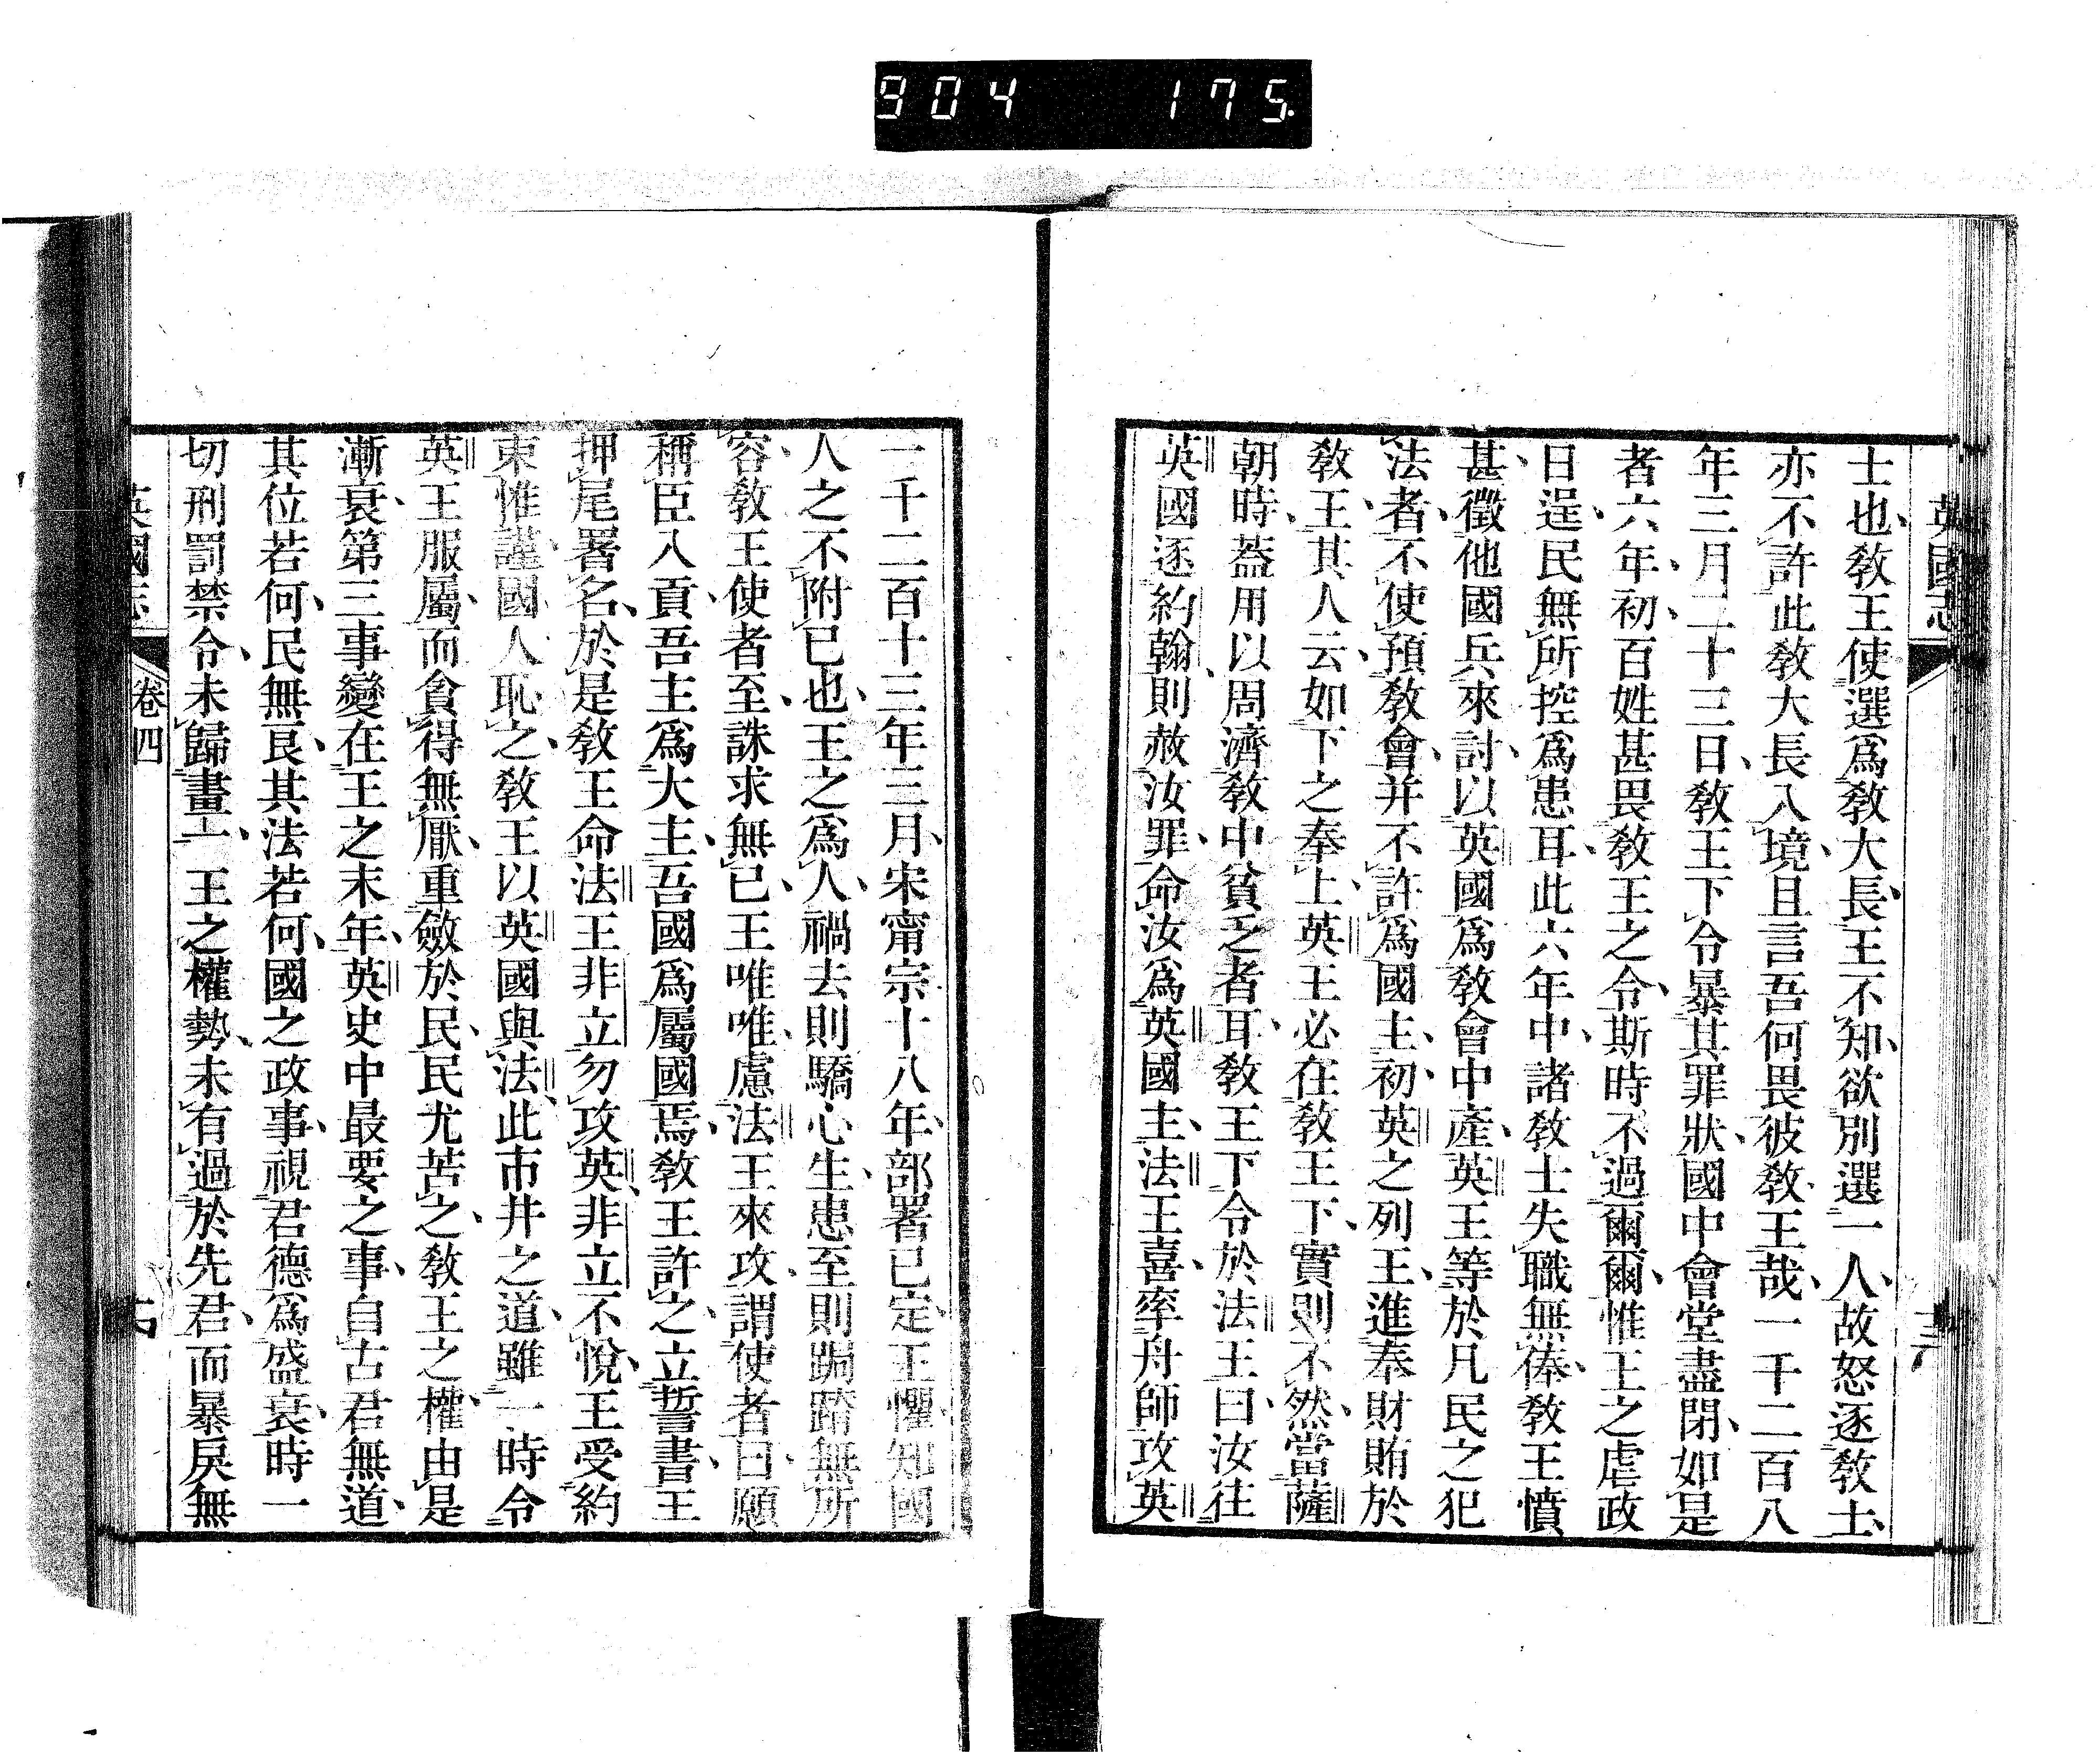 904 175
英國志
士也教王使選爲教大長王不知欲別選一人故怒逐教士
亦不許此教大長入境且言吾何畏彼教王哉一千二百八
年三月二十三日教王下令暴其罪狀國中會堂盡閉如是
者六年初百姓甚畏教王之令斯時不過爾爾惟王之虐政
日逞民無所控爲患耳此六年中諸教士失職無俸教王憤
甚徵他國兵來討以英國爲教會中產英王等於凡民之犯
法者不使預教會并不許爲國主初英之列王進奉財賄於
教王其人云如下之奉上英王必在教王下實則不然當薩
朝時蓋用以周濟教中貧乏者耳教王下令於法王曰汝往
英國逐約翰則赦汝罪命汝爲英國主法王喜率舟師攻英
一千二百十三年三月宋甯宗十八年部署已定王懼知國
人之不附已也王之爲人禍去則驕心生患至則跼蹐無所
容教王使者至誅求無已王唯唯慮法王來攻謂使者曰願
稱臣入貢吾主爲大主吾國爲屬國焉教王許之立誓書王
押尾署名於是教王命法王非立勿攻英非立不悅王受約
束惟謹國人恥之教王以英國與法此市井之道雖一時令
英王服屬而貪得無厭重斂於民民尤苦之教王之權由是
漸衰第三事變在王之末年英史中最要之事自古君無道
其位若何民無艮其法若何國之政事視君德爲盛衰時一
切刑罰禁令未歸畫一王之權勢未有過於先君而暴戾無
英國志
卷四